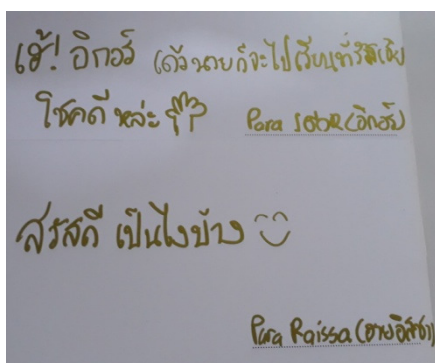 เฮ้! อิกอร์ เดี๋ยวนายก็จะไปเรียนที่รัสเซีย
โชคดี หล่ะ
Para IGOR (อิกอร์)
สวัสดี เป็นไงบ้าง
Para Raissa